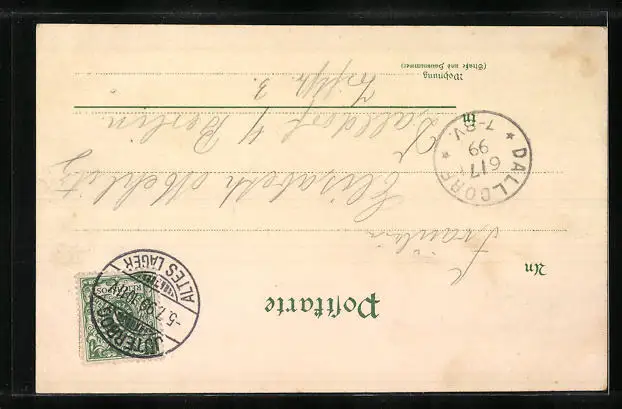 Postkarte
An
Fräulein
Elisabeth
in Dalldorf b/ Berlin
3.
Wohnung
(Straße und Hausnummer)
REICHSPOST
JÜTERBOG
-5.7.99.
ALTES LAGER
DALLDORF
6/7
99
7-8V.